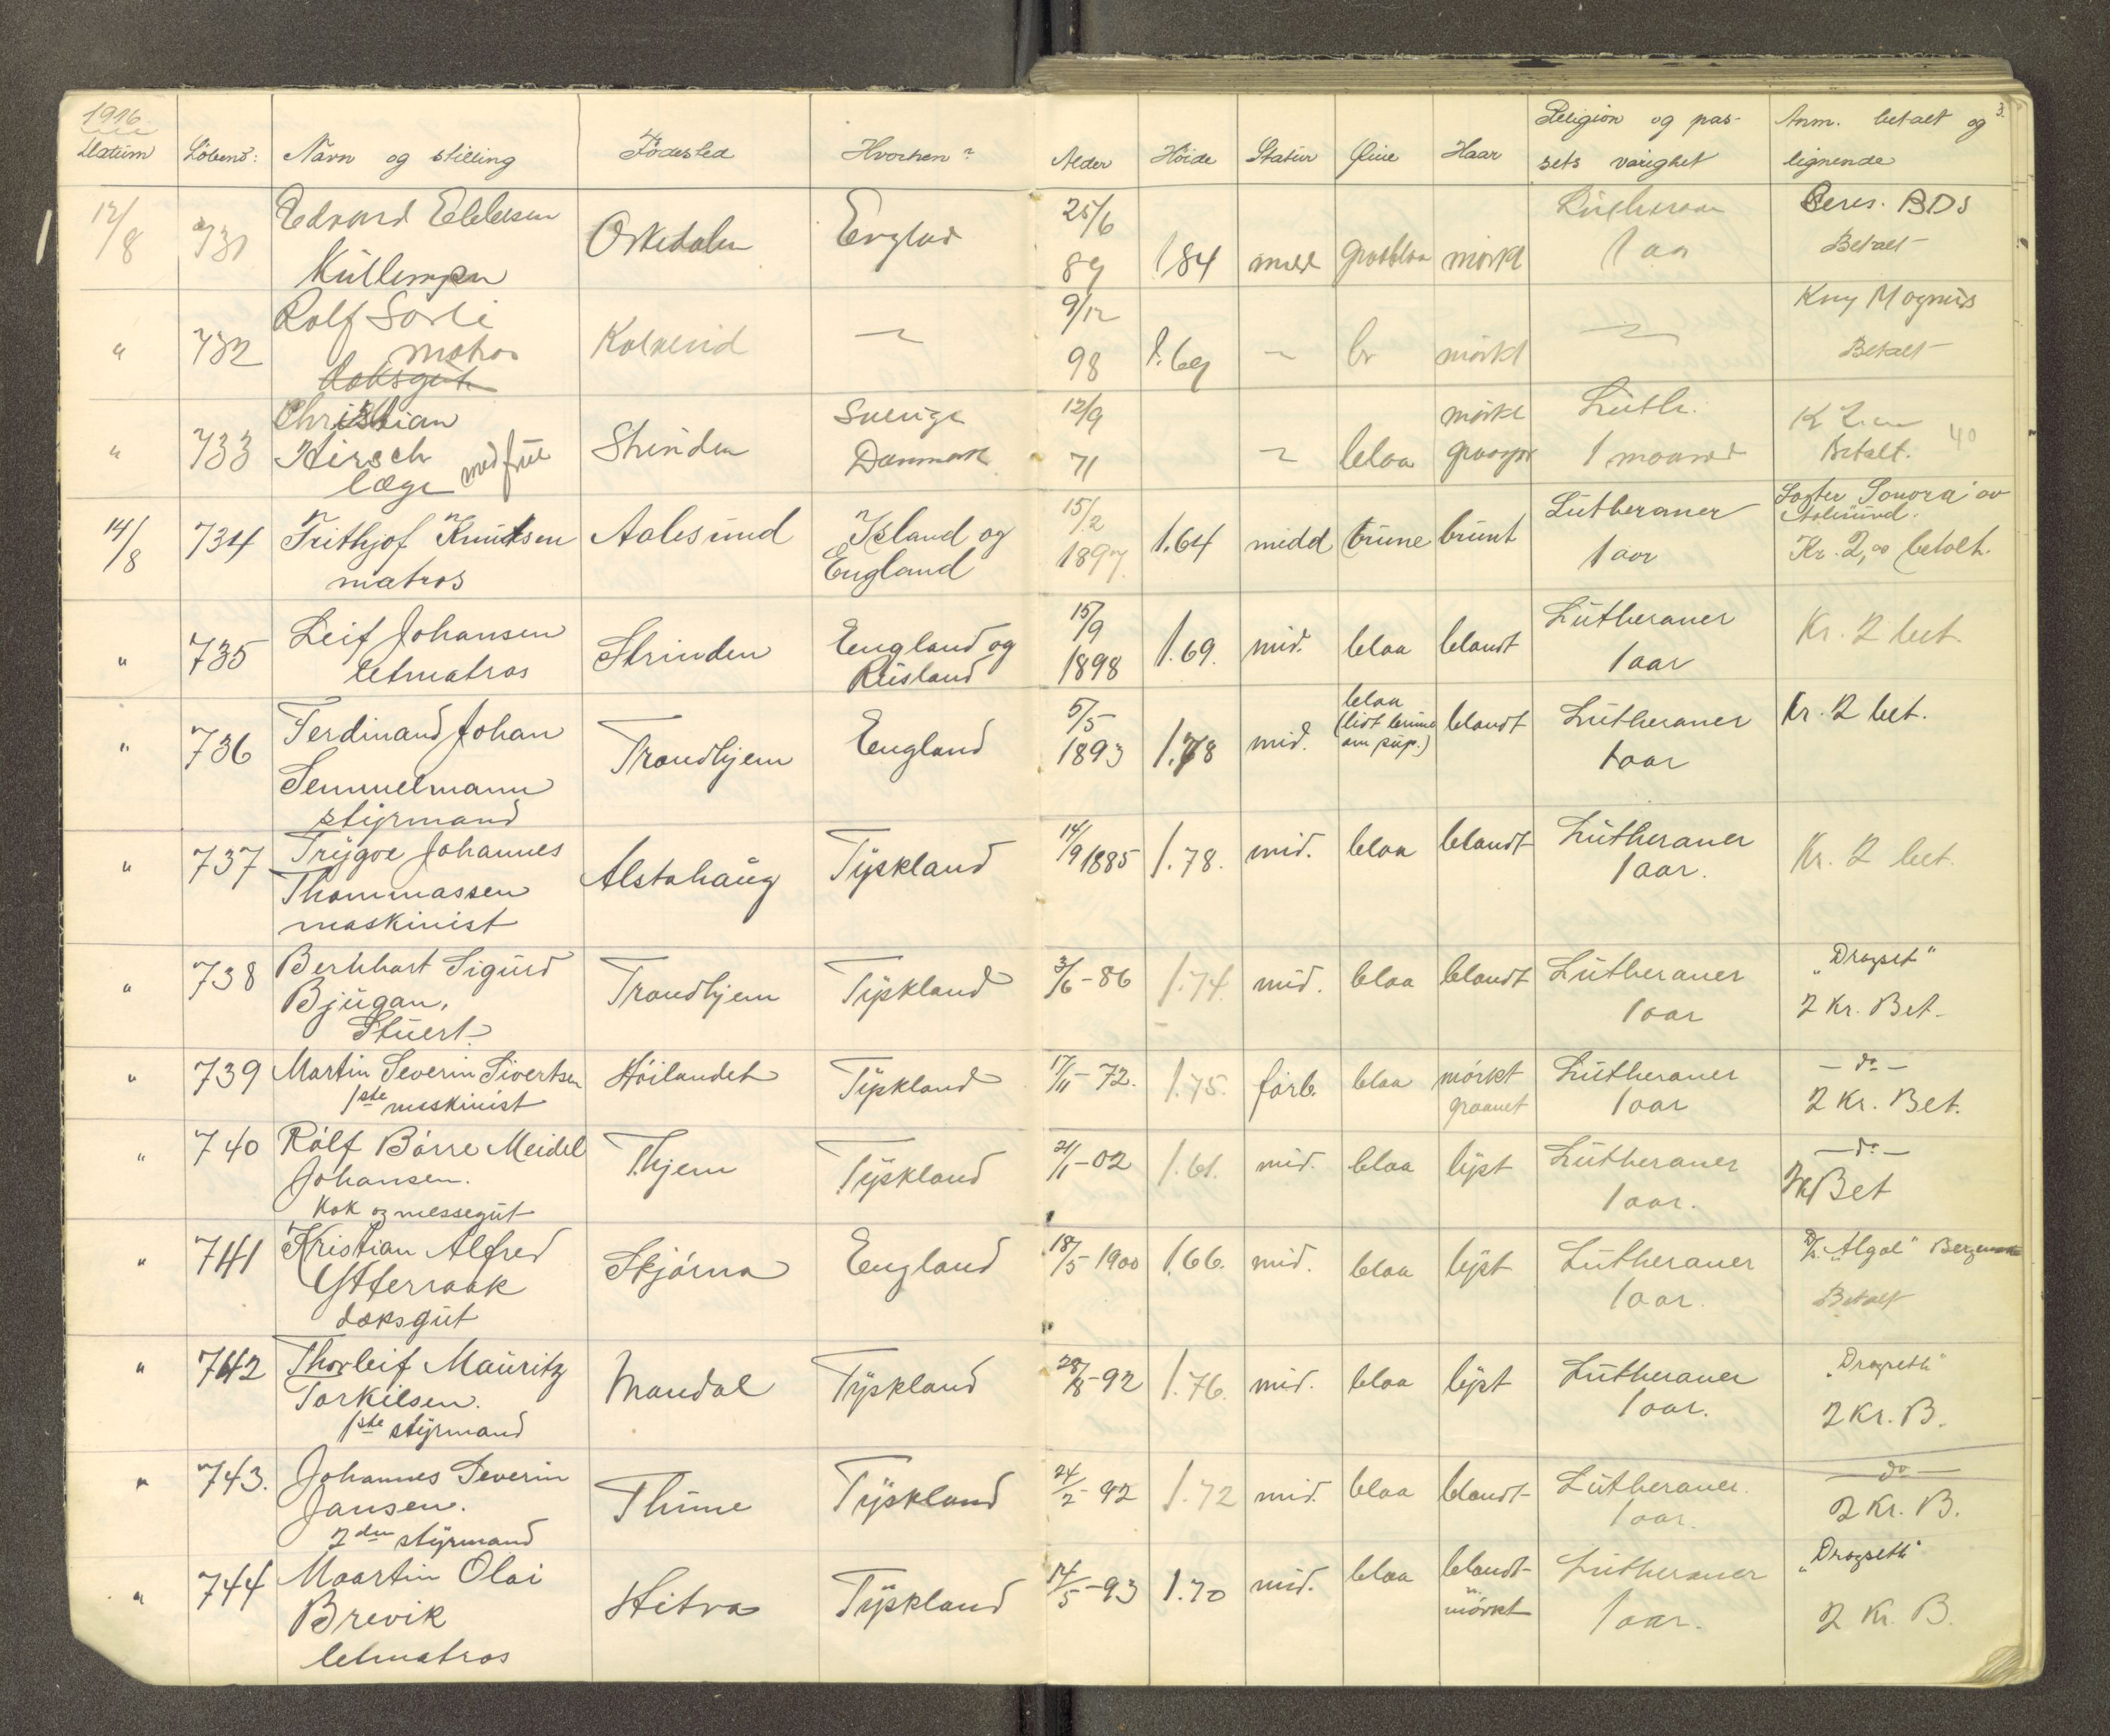 1916
3.
Datum Löbenr: Navn og stilling Födested Hvorhen? Alder Höide Statur Öine Haar Religion og pas- Anm. betalt og
sets varighet lignende
12/8 731 Edvard Ellefsen Orkedalen England 25/6 89 1.84 midd graablaa mörkt Lutheraner Ceres. BDS
Kullemper 1 aar Betalt
" 732 Rolf Sörli Kolvereid 9/12 98 1.69 br mörkt Kny Magnus
matros Betalt
daksgut
" 733 Christian Strinden Sverige 12/9 71 blaa mörkt Luth. 40
Hirsch med frue Danmark graaspr 1 maaned Betalt.
læge
14/8 734 Frithjof Knutsen Aalesund Island og 15/2 1897 1.64 midd brune brunt Lutheraner Sonora av
matros England 1 aar Aalesund.
Kr. 2,00 betalt.
" 735 Leif Johansen Strinden England og 15/9 1898 1.69. mid. blaa blandt Lutheraner Kr. 2 bet.
letmatros Rusland 1 aar
" 736 Ferdinand Johan Trondhjem England 5/5 1893 1.78 mid. blaa blandt Lutheraner Kr. 2 bet.
Semmelmann (lidt brune 1 aar
styrmand om pup.)
" 737 Trygve Johannes Alstahaug Tyskland 14/9 1885 1.78. mid. blaa blandt Lutheraner Kr. 2 bet.
Thommassen 1 aar.
maskinist
" 738 Bernhart Sigurd Trondhjem Tyskland 3/6-86 1.74. mid. blaa blandt Lutheraner "Dragset"
Bjugan, 1 aar 2 Kr. Bet.
Stuert
" 739 Martin Severin Sivertsen Höilandet Tyskland 17/11-72. 1.75. förb. blaa mörkt Lutheraner - do -
1ste maskinist graanet 1 aar 2 Kr. Bet.
" 740 Rolf Börre Meidel Thjem Tyskland 21/1-02 1.61. mid. blaa lyst Lutheraner - do -
Johansen. 1 aar. Bet
Kok og messegut
" 741 Kristian Alfred Skjörna England 18/5 1900 1.66. mid. blaa lyst Lutheraner "Algol" Bergen
Ytterraak 1 aar. Betalt
daksgut
" 742 Thorleif Mauritz Mandal Tyskland 28/8-92 1.76. mid. blaa lyst Lutheraner "Dragseth"
Torkilsen. 1 aar. 2 Kr. B.
1ste styrmand
" 743. Johannes Severin Thime Tyskland 24/2-92 1.72 mid. blaa blandt Lutheraner. - do -
Jansen. 1 aar. 2 Kr. B.
2den styrmand
" 744 Maartin Olai Hitra Tyskland 14/5-93 1.70 mid. blaa blandt- Lutheraner "Dragseth"
Brevik mörkt 1 aar. 2 Kr. B.
letmatros